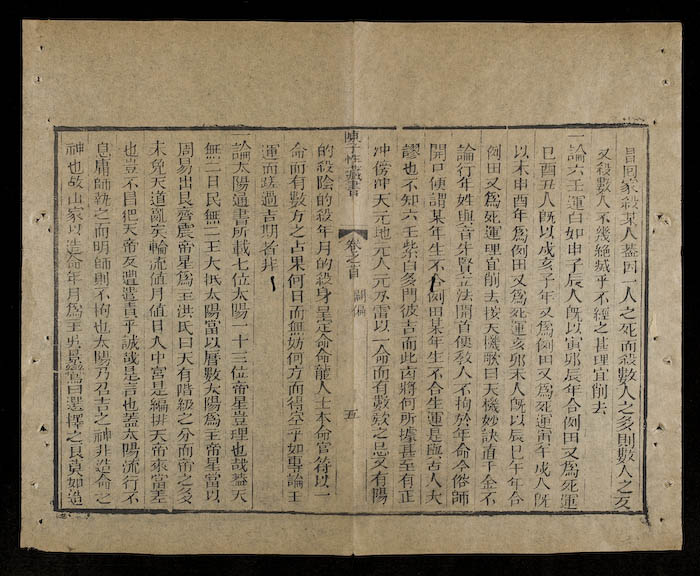 昌回家殺某人葢因一人之死而殺數人之多則數人之友
又殺數人不幾絶城乎不經之甚理宜削去
一論六壬運白如申子辰人旣以寅卯辰年合例田又爲死運
巳酉丑人旣以戌亥子年又爲例田又爲死運寅午戌人旣
以未申酉年爲例田又爲死運亥卯未人旣以辰巳午年合
例田又爲死運理宜削去按天機歌曰天機妙訣値千金不
論行年姓與音先賢立法開首便敎人不拘於年命今俗師
開口便謂某年生不合例田某年生不合生運是與古人大
謬也不知六壬紫白多門彼吉而此凶將何所據甚至有正
冲傍冲天元地元人元乃雷以一人命而有數煞之忌又有陽
陳子性藏書
卷之首
闢僞
五
的殺陰的殺年月的殺身皇定命命龍人士本命官符以一
命而有數方之占果何日而無妨何方而得空乎如專論王
運而蹉過吉期者非
一論太陽通書所載七位太陽一十三位帝星豈理也哉葢天
無二日民無二王大抵太陽當以曆數太陽爲王帝星當以
周易出艮齊震帝星爲王洪氏曰天有階級之分而帝之爻
未免天道亂矣輪流值月值日入中宮是編排天帝來當差
也豈不自把天帝友禮遣責乎誠哉是言也葢太陽流行不
息庸師執之而明師則不拘也太陽乃召吉之神非造命之
神也故山家以造命年月爲王吳景鸞曰選擇之良莫如造